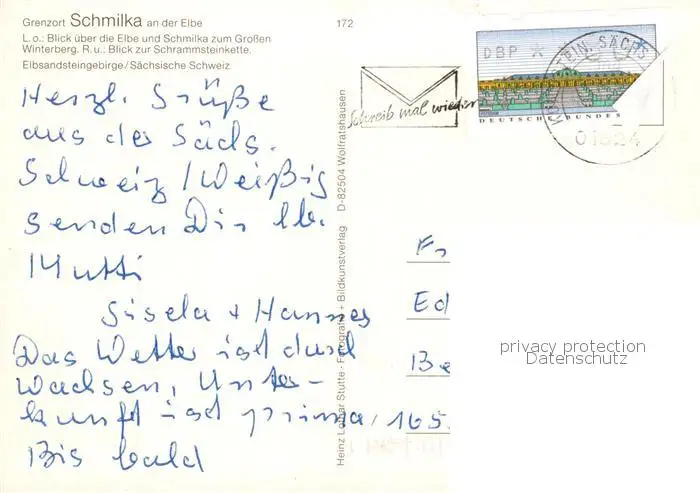 Grenzort Schmilka an der Elbe
172
L. o.: Blick über die Elbe und Schmilka zum Großen
Winterberg. R. u.: Blick zur Schrammsteinkette.
Elbsandsteingebirge/Sächsische Schweiz
DBP
DEUTSCHE BUNDES
KÖNIGSTEIN, SÄCHS
01824
Schreib mal wieder
Herzl. Grüße
aus der Sächs.
Schweiz / Weißig
senden Dir lb.
Mutti
Gisela + Hannes
Das Wetter ist durch
wachsen, Unter-
kunft ist prima,
Bis bald
Heinz Lothar Stutte · Fotografie + Bildkunstverlag D-82504 Wolfratshausen
Fr
Ed
Be
165
privacy protection
Datenschutz